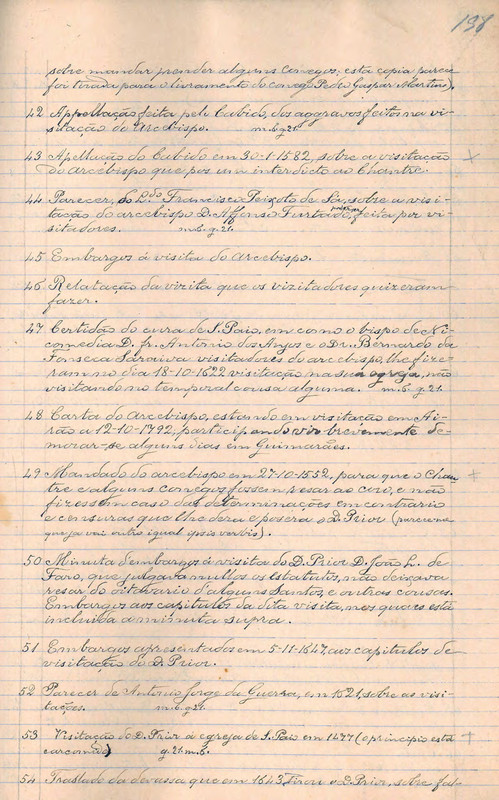 198
sobre mandar prender alguns conegos: esta copia parece
foi tirada para o livramento do conego Pedro Gaspar Martins).
42 Appellação feita pelo Cabido, dos aggravos feitos na vi-
sitação do Arcebispo. m. 6. g. 21.
43 Apellação do Cabido em 30-1-1582, sobre a visitação
do Arcebispo que pos um interdicto ao Chantre.
44 Parecer, do L.do Francisco Peixoto de Sá, sobre a visi-
tação do arcebispo D. Affonso Furtado, feita por vi-
sitadores. m. 6. g. 21.
45 Embargos á visita do Arcebispo.
46 Relatação da vizita que os vizitadores quizeram
fazer.
47 Certidão do cura de S. Paio, em como o bispo de Ni-
comedia D. fr. Antonio dos Anjos e o Dr. Bernardo da
Fonseca Saraiva visitadores do arcebispo, lhe fize-
ram no dia 18-10-1622 visitação na sua egreja, não
visitando no temporal cousa alguma. m. 6. g. 21.
48 Carta do Arcebispo, estando em visitação em Ai-
rão a 12-10-1792, participando vir brevemente de-
morar-se alguns dias em Guimarães.
49 Mandado do arcebispo em 27-10-1552, para que o Chan-
tre e alguns conegos fossem resar ao coro, e não
fizessem caso das determinações em contrario
e censuras que lhe dera e posera o D. Prior (parece me
que ja vai outro igual ipsis verbis).
50 Minuta d'embargos á visita do D. Prior D. João L. de
Faro, que julgava nullos os Estatutos, não deixava
resar do oitavario d'alguns Santos, e outras cousas.
Embargos aos capitulos da dita visita, nos quaes está
incluida a minuta supra.
51 Embargos apresentados em 5-11-1647, aos capitulos de
visitação do D. Prior.
52 Parecer de Antonio Jorge da Guerra, em 1521, sobre as visi-
tações. m. 6. g. 21.
53 Visitação do D. Prior á egreja de S. Paio em 1477 (o principio está
carcomido) g. 21. m. 6.
54 Traslado da devassa que em 1643, tirou o D. Prior, sobre fal-